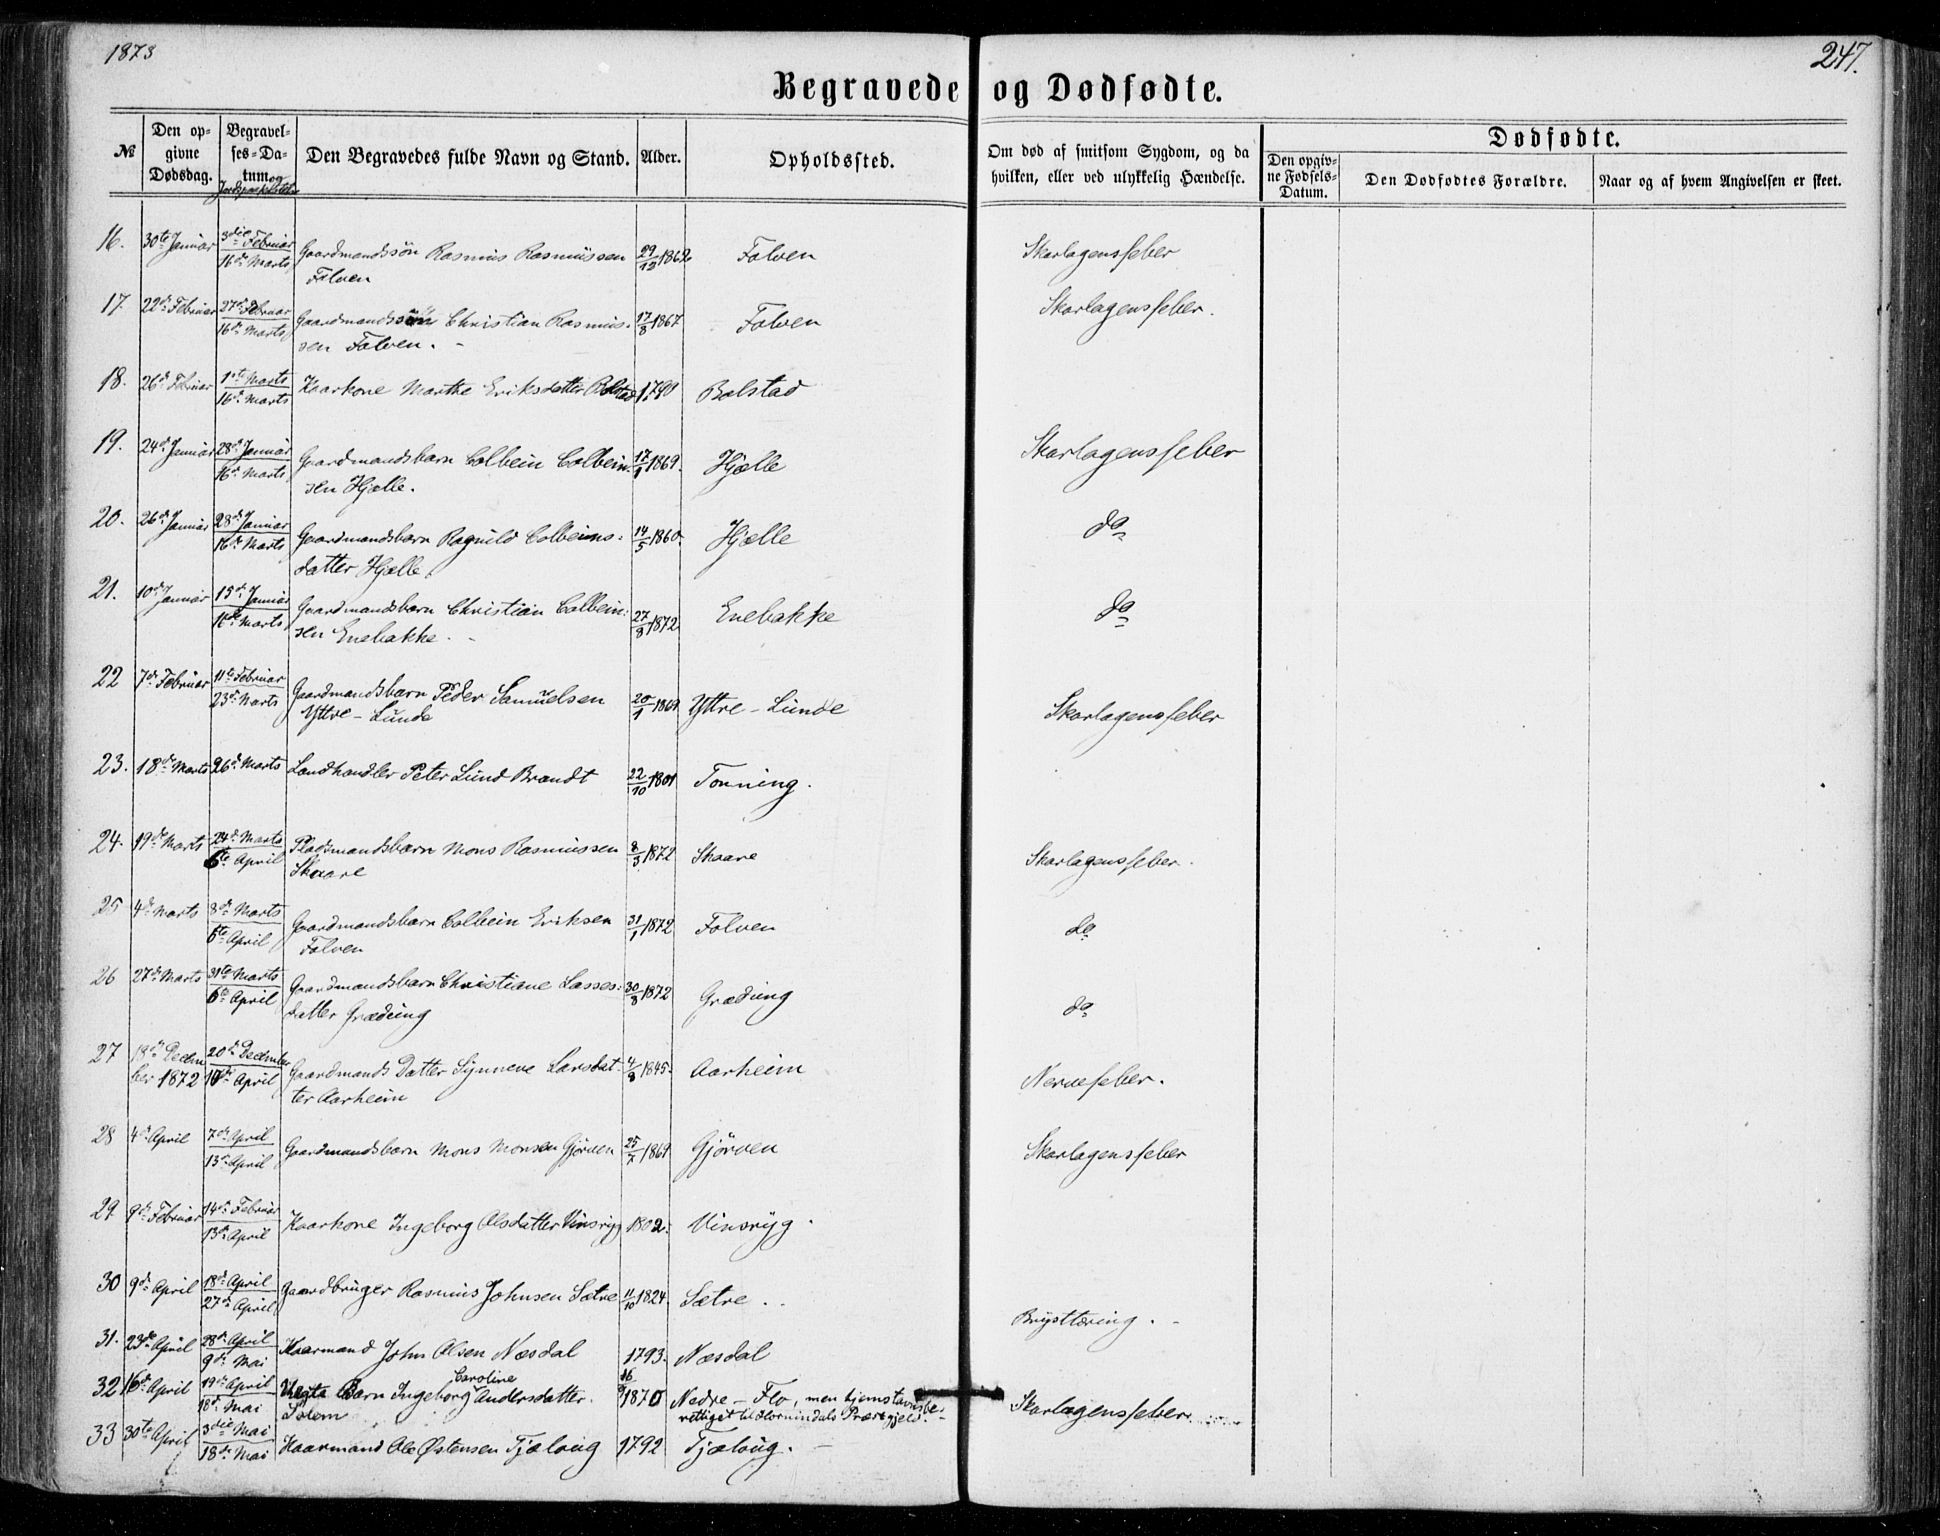 1873
247.
Begravede og Dødfødte.
№ Den opgivne Dødsdag. Begravelses-Datum og Jordspaakastelse Den Begravedes fulde Navn og Stand. Alder. Opholdssted. Om død af smitsom Sygdom, og da hvilken, eller ved ulykkelig Hændelse. Dødfødte. Den opgivne Fødsels-Datum. Den Dødfødtes Forældre. Naar og af hvem Angivelsen er skeet.
16. 30te Januar 3die Februar Gaardmandssön Rasmus Rasmussen 29/12 1862 Folven Skarlagensfeber
16de Marts Folven
17. 22de Februar 27de Februar Gaardmandssön Christian Rasmus- 17/8 1867 Folven Skarlagensfeber.
16de Marts sen Folven.
18. 26de Februar 1ste Marts Kaarkone Marthe Eriksdatter Bolstad Bolstad
16de Marts
19. 24de Januar 28de Januar Gaardmandsbarn Colbein Colbein- 17/1 1869. Hjelle Skarlagensfeber
16de Marts sen Hjelle.
20. 26de Januar 28de Januar Gaardmandsbarn Ragnild Colbeins- 14/5 1860. Hjelle do
16de Marts datter Hjelle.
21. 10de Januar 15de Januar Gaardmandsbarn Christian Colbein- 27/8 1872 Enebakke do
16de Marts sen Enebakke.
22 7de Februar 11te Februar Gaardmandsbarn Peder Samuelsen 20/1 1869 Yttre-Lunde Skarlagensfeber
23de Marts Yttre-Lunde
23. 18de Marts 26de Marts Landhandler Peter Lund Brandt 22/10 1801 Tonning.
24. 19de Marts 24de Marts Pladsmandsbarn Mons Rasmussen 8/3 1872 Skaare Skarlagensfeber.
6te April Skaare
25 4de Marts 8de Marts Gaardmandsbarn Colbein Eriksen 31/1 1872 Folven do
6te April Folven
26 27de Marts 31te Marts Gaardmandsbarn Christiane Lasses- 30/8 1872 Græding do
6te April datter Græding
27 18de Decem 20de December Gaardmands Datter Synneve Larsdat- 4/8 1845. Aarheim Nervefeber.
ber 1872 10de April ter Aarheim
28 4de April 7de April Gaardmandsbarn Mons Monsen Gjörven 25/7 1869 Gjörven Skarlagensfeber
13de April
29 9de Februar 14de Februar Kaarkone Ingeborg Olsdatter Vinsryg 1802. Vinsryg.
13de April
30 9de April 18de April Gaardbruger Rasmus Johnsen Sætre 11/10 1824. Sætre. Brysttæring.
27de April
31. 23de April 28de April Kaarmand John Olsen Næsdal 1793. Næsdal
9de Mai
Caroline
32 16de April 19de April Lægts Barn Ingeborg Andersdatter 1870 Nedre-Flo, men hjemstavnsbe- Skarlagensfeber
18de Mai Solem rettiget til Hornindals Præstegjeld.
33 30te April 3die Mai Kaarmand Ole Østensen Tjæloug 1792 Tjæloug.
18de Mai